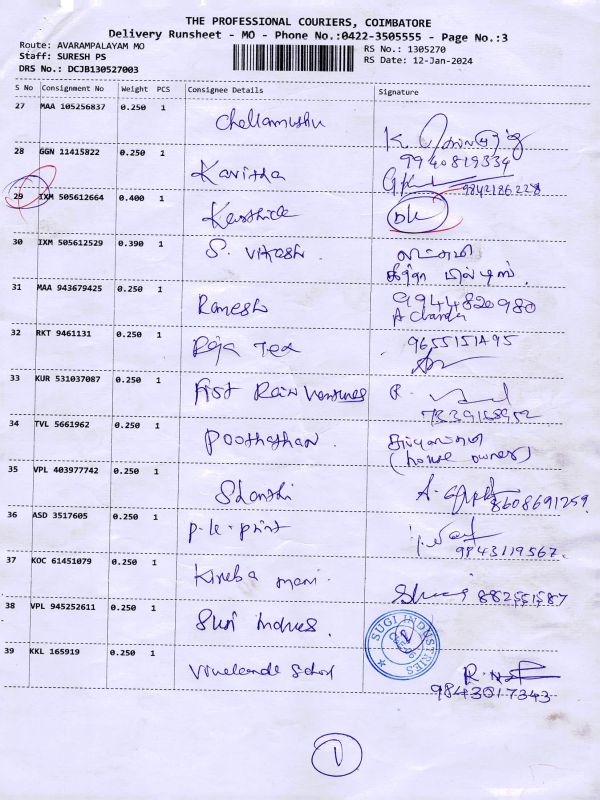 THE PROFESSIONAL COURIERS, COIMBATORE
Delivery Runsheet - MO - Phone No.:0422-3505555 - Page No.:3
Route: AVARAMPALAYAM MO
Staff: SURESH PS
DRS No.: DCJB130527003
RS No.: 1305270
RS Date: 12-Jan-2024
S No Consignment No Weight PCS Consignee Details Signature
27 MAA 105256837 0.250 1 Chellamuthu
K.
9940819334
28 GGN 11415822 0.250 1 Kavitha
9842186228
29 IXM 505612664 0.400 1 Karthick
30 IXM 505612529 0.390 1 S. Vikash
லட்சுமி
31 MAA 943679425 0.250 1 Ramesh
9944820980
A Chandra
32 RKT 9461131 0.250 1 Raja Tex
9655151495
33 KUR 531037087 0.250 1 First Rain Ventures
R.
7339168952
34 TVL 5661962 0.250 1 Poothathan
(house owner)
35 VPL 403977742 0.250 1 Shanthi
A. 8608691259
36 ASD 3517605 0.250 1 P.K. Print
9843119567.
37 KOC 61451079 0.250 1 Kiruba mani
882551587
38 VPL 945252611 0.250 1 Sugi Indus.
SUGI INDUSTRIES
39 KKL 165919 0.250 1 School
9843017343
1